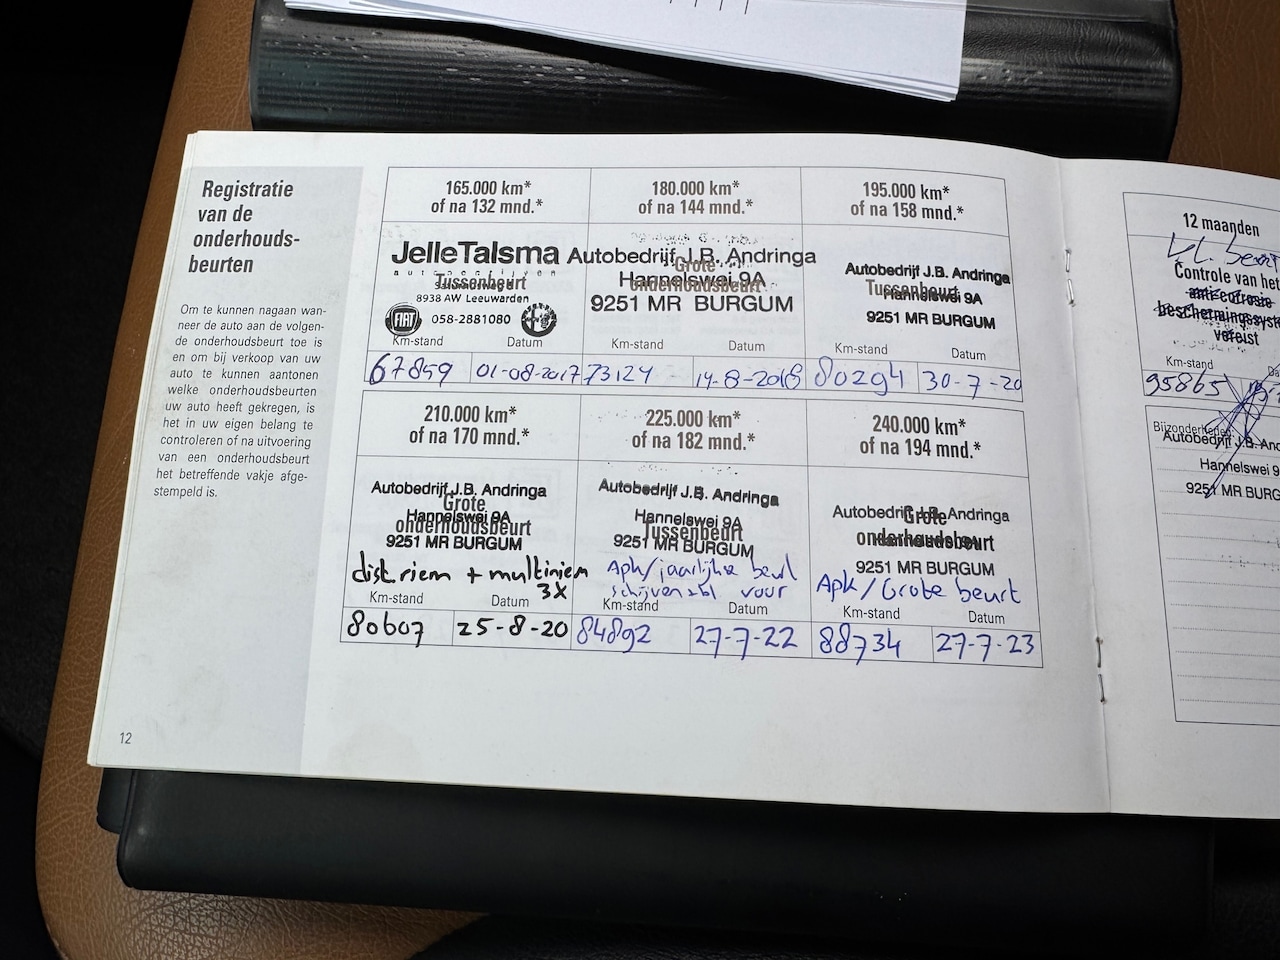 Registratie
van de
onderhouds-
beurten
Om te kunnen nagaan wan-
neer de auto aan de volgen-
de onderhoudsbeurt toe is
en om bij verkoop van uw
auto te kunnen aantonen
welke onderhoudsbeurten
uw auto heeft gekregen, is
het in uw eigen belang te
controleren of na uitvoering
van een onderhoudsbeurt
het betreffende vakje afge-
stempeld is.
12
165.000 km*
of na 132 mnd.*
JelleTalsma
autobedrijven
Tussenbeurt
8938 AW Leeuwarden
FIAT
058-2881080
Km-stand Datum
67859 01-08-2017
180.000 km*
of na 144 mnd.*
Autobedrijf J.B. Andringa
Grote
Hannelswei 9A
onderhoudsbeurt
9251 MR BURGUM
Km-stand Datum
73124 14-8-2018
195.000 km*
of na 158 mnd.*
Autobedrijf J.B. Andringa
Tussenbeurt
Hannelswei 9A
9251 MR BURGUM
Km-stand Datum
80294 30-7-20
210.000 km*
of na 170 mnd.*
Autobedrijf J.B. Andringa
Grote
Hannelswei 9A
onderhoudsbeurt
9251 MR BURGUM
dist riem + multiriem
3X
Km-stand Datum
80607 25-8-20
225.000 km*
of na 182 mnd.*
Autobedrijf J.B. Andringa
Hannelswei 9A
Tussenbeurt
9251 MR BURGUM
Apk/jaarlijkse beurt
voor
Km-stand Datum
84892 27-7-22
240.000 km*
of na 194 mnd.*
Autobedrijf J.B. Andringa
Grote
onderhoudsbeurt
9251 MR BURGUM
Apk/Grote beurt
Km-stand Datum
88734 27-7-23
12 maanden
kl. beurt
Controle van het
anti-corrosie
beschermingssyst
vereist
Km-stand Da
95865
Bijzonderheden:
Autobedrijf J.B. An
Hannelswei 9
9251 MR BURG